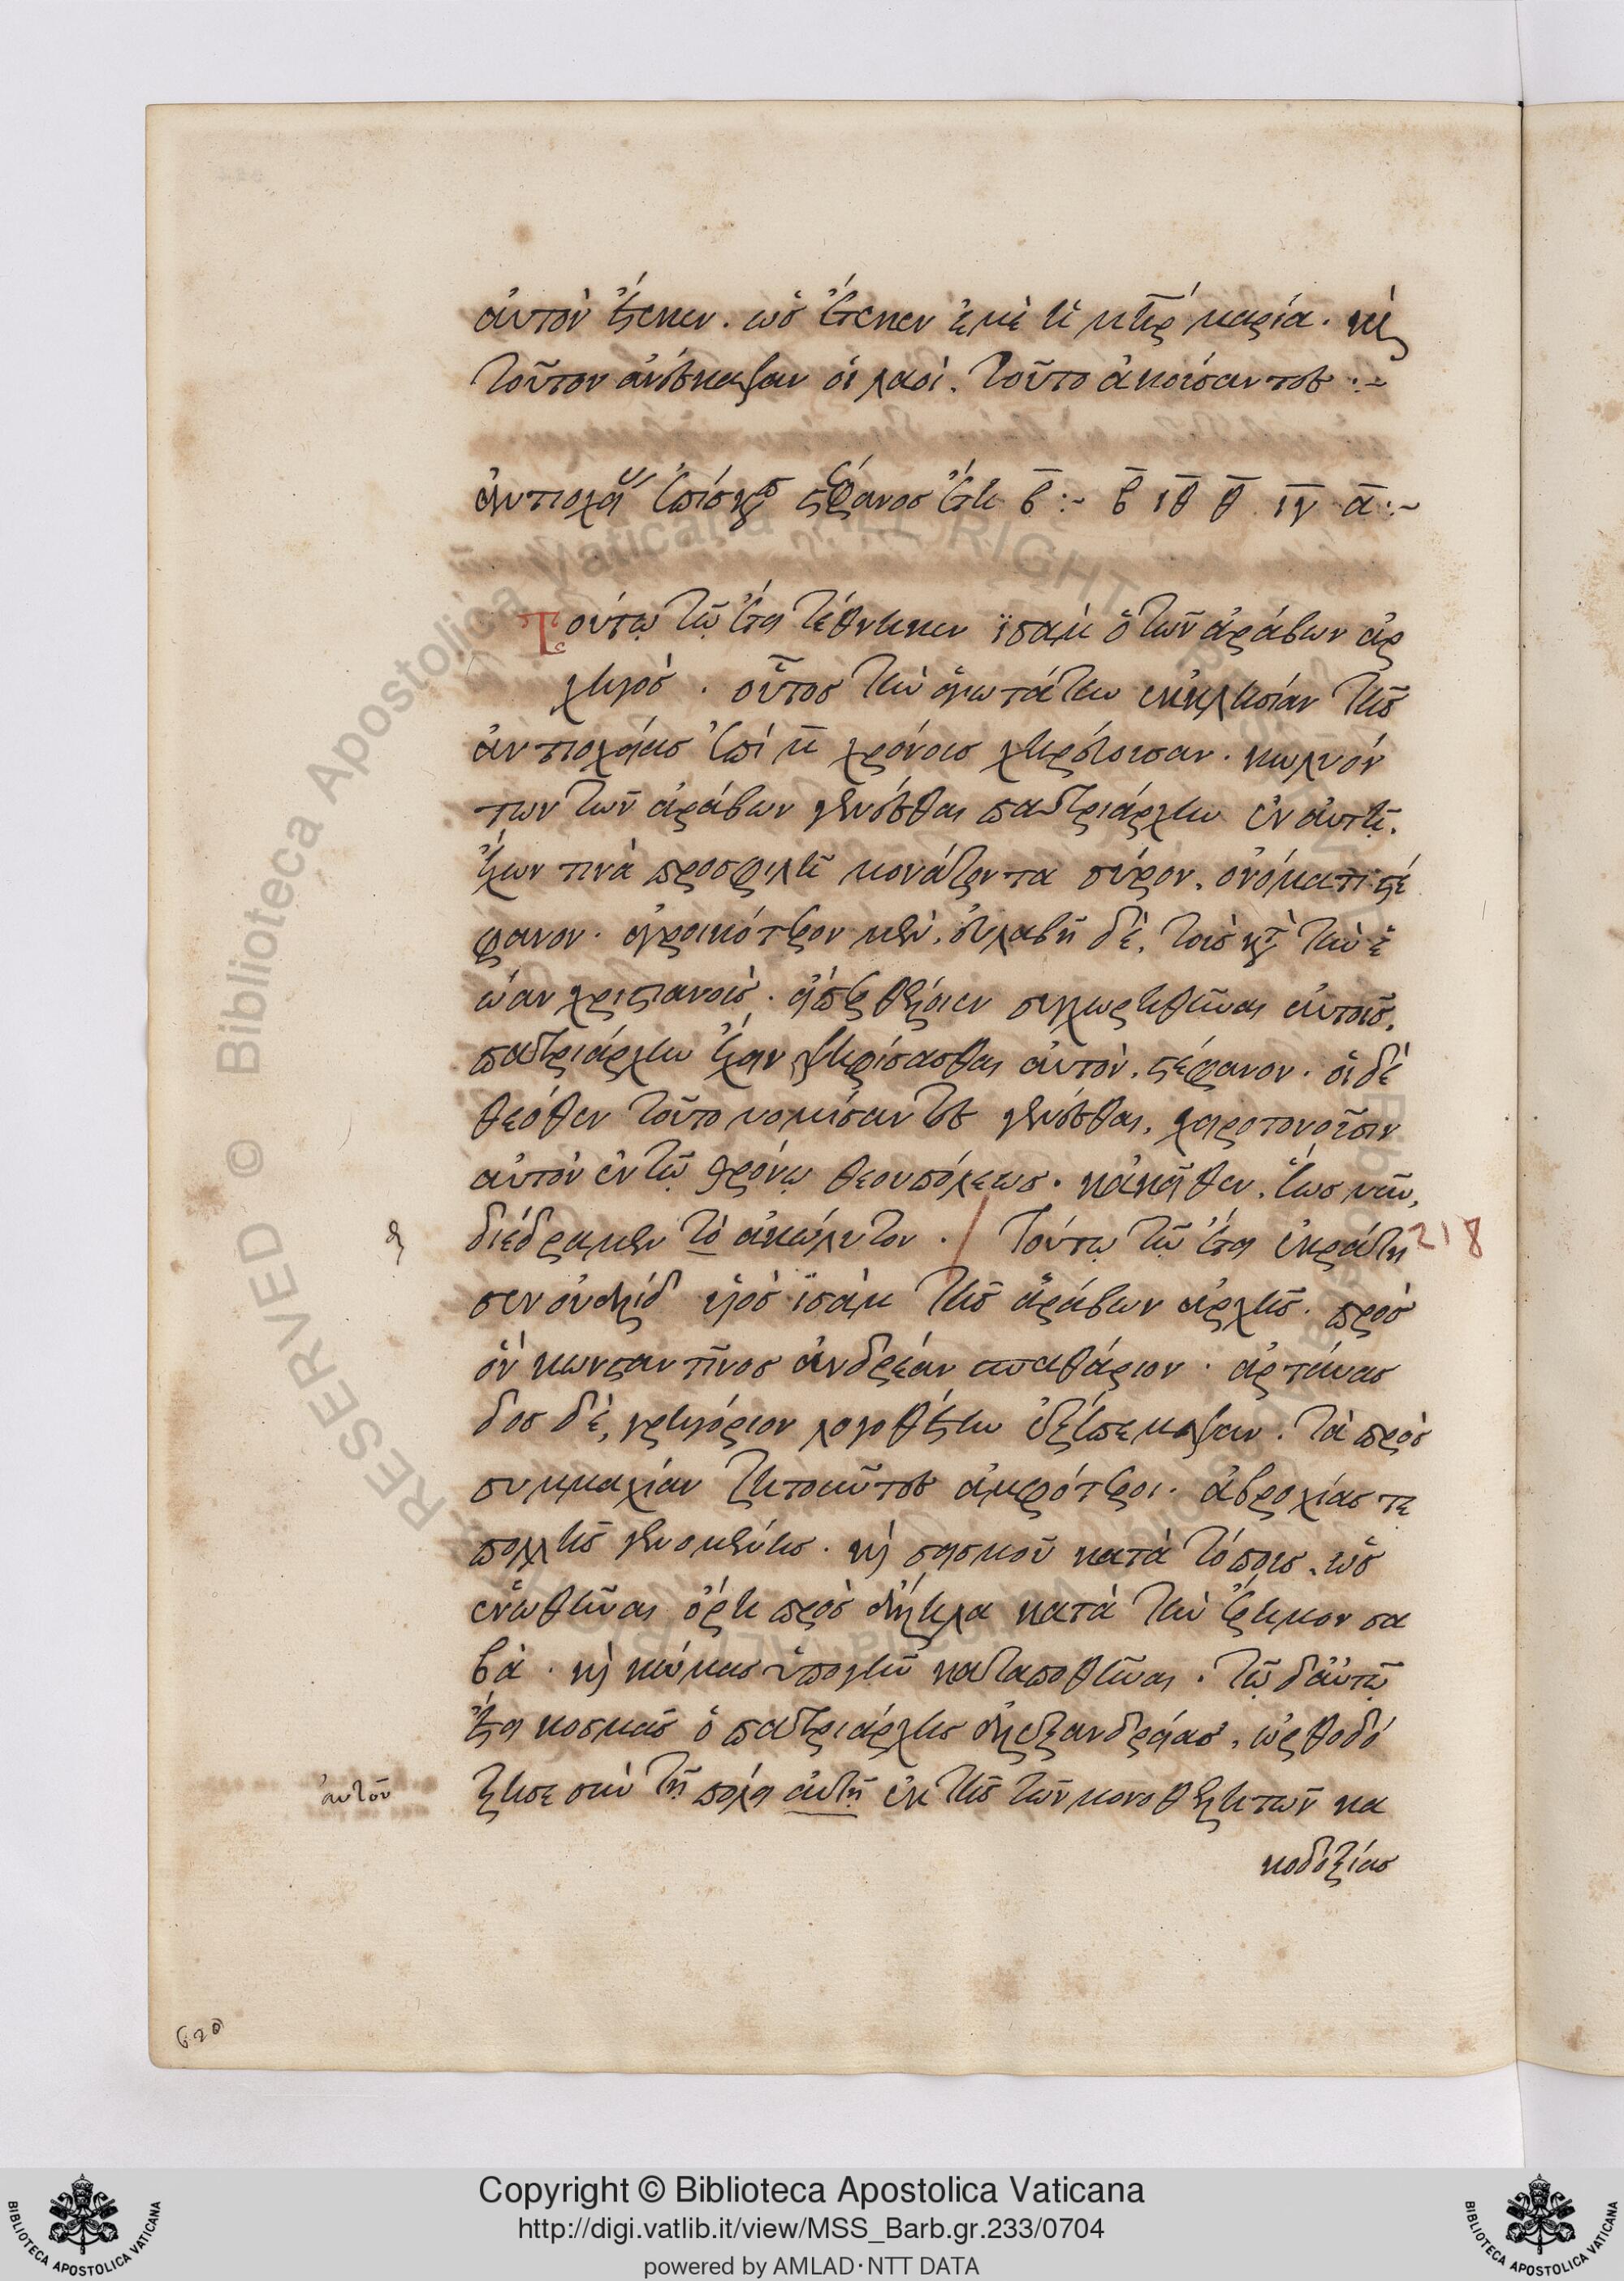 αὐτὸν ἔτεκεν. ὡς ἔτεκεν ἐμὲ ἡ μτηρ μαρία. καὶ
τοῦτον ἀνέσκαψαν οἱ λαοὶ. τοῦτο ἀκούσαντες :~
ἀντιοχεί ἐπίσκο στέφανος ἔτη β :~ β ιθ θ ιγ α :~
Τούτω τῶ ἔτει τέθνηκεν ϊσαμ ὁ τῶν ἀράβων ἀρ
χηγὸς. οὗτος τὴν ἁγιωτάτην ἐκκλησίαν τῆς
ἀντιοχείας ἐπὶ μ χρόνοις χηρεύουσαν. κωλυόν
των τῶν ἀράβων γενέσθαι πατριάρχην ἐν αὐτῆ.
ἔχων τινὰ προσφιλῆ μονάζοντα σύρον. ὀνόματι στέ
φανον. ἀγροικότερον μὲν, εὐλαβῆ δὲ. τοῖς κατὰ τὴν ἑ
ώαν χριστιανοῖς. εἴπερ θέλοιεν συγχωρηθῆναι αὐτοῖς.
πατριάρχην ἔχειν ψηφίσασθαι αὐτὸν. στέφανον. οἱ δὲ
θεόθεν τοῦτο νομίσαντες γενέσθαι, χειροτονοῦσιν
αὐτὸν ἐν τῶ θρόνω θεουπόλεως. κἀκεῖθεν. ἕως νῦν,
διέδραμεν τὸ ἀκώλυτον. / Τούτω τῶ ἔτει ἐκράτη 218
σεν οὐαλὶδ υἱὸς ϊσὰμ τῆς ἀράβων ἀρχῆς. πρὸς
ὃν κωνσταντῖνος ἀνδρέαν σπαθάριον. ἀρτάυας
δος δὲ, γρηγόριον λογοθέτην ἐξέπεμψαν. τὰ πρὸς
συμμαχίαν ζητοῦντες ἀμφότεροι. ἀβροχίας τε
πολλῆς γενομένης. καὶ σεισμοῦ κατὰ τόπους. ὡς
ἑνωθῆναι ὄρη πρὸς ἄλληλα κατὰ τὴν ἔρημον σα
βὰ. καὶ κώμας ὑπογῆν καταποθῆναι. τῶ δ' αὐτῶ
ἔτει κοσμᾶς ὁ πατριάρχης ἀλεξανδρείας, ὠρθοδό
αὐτοῦ
ξησε σὺν τῆ πόλει αὐτῆ ἐκ τῆς τῶν μονοθελητῶν κα
κοδοξίας
620
Copyright © Biblioteca Apostolica Vaticana
http://digi.vatlib.it/view/MSS_Barb.gr.233/0704
powered by AMLAD·NTT DATA
BIBLIOTECA APOSTOLICA VATICANA
BIBLIOTECA APOSTOLICA VATICANA